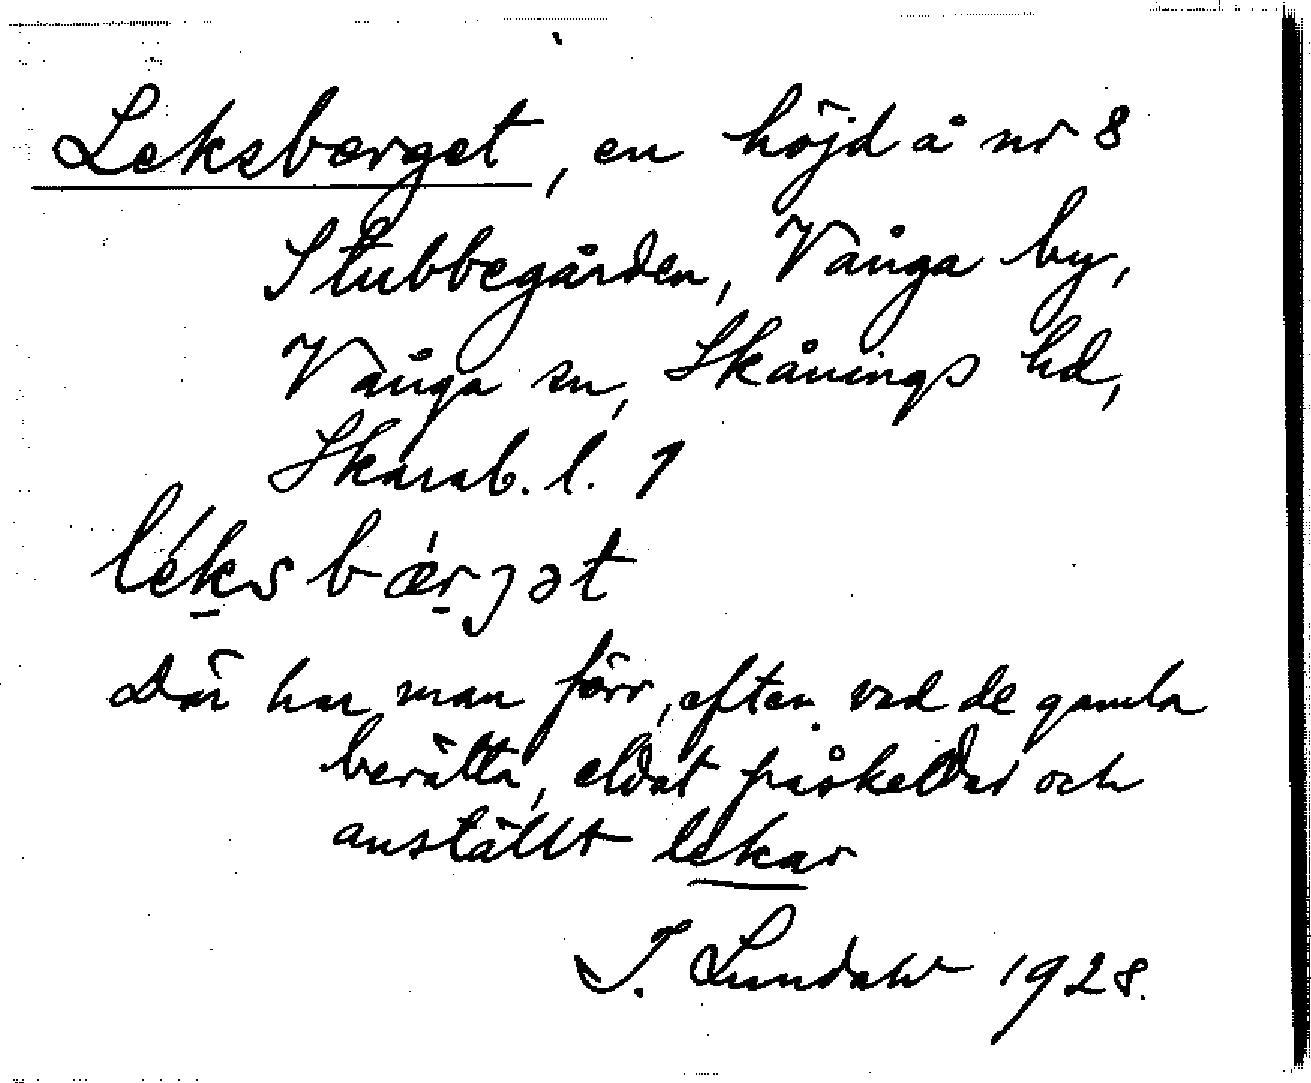 Leksberget, en höjd å nr 8
Stubbegården, Vånga by,
Vånga sn, Skånings hd,
Skarab. l. 1
léksbærjət
Där har man förr, efter vad de gamla
berätta, eldat påskeldar och
anställt lekar
I. Lundahl 1928.